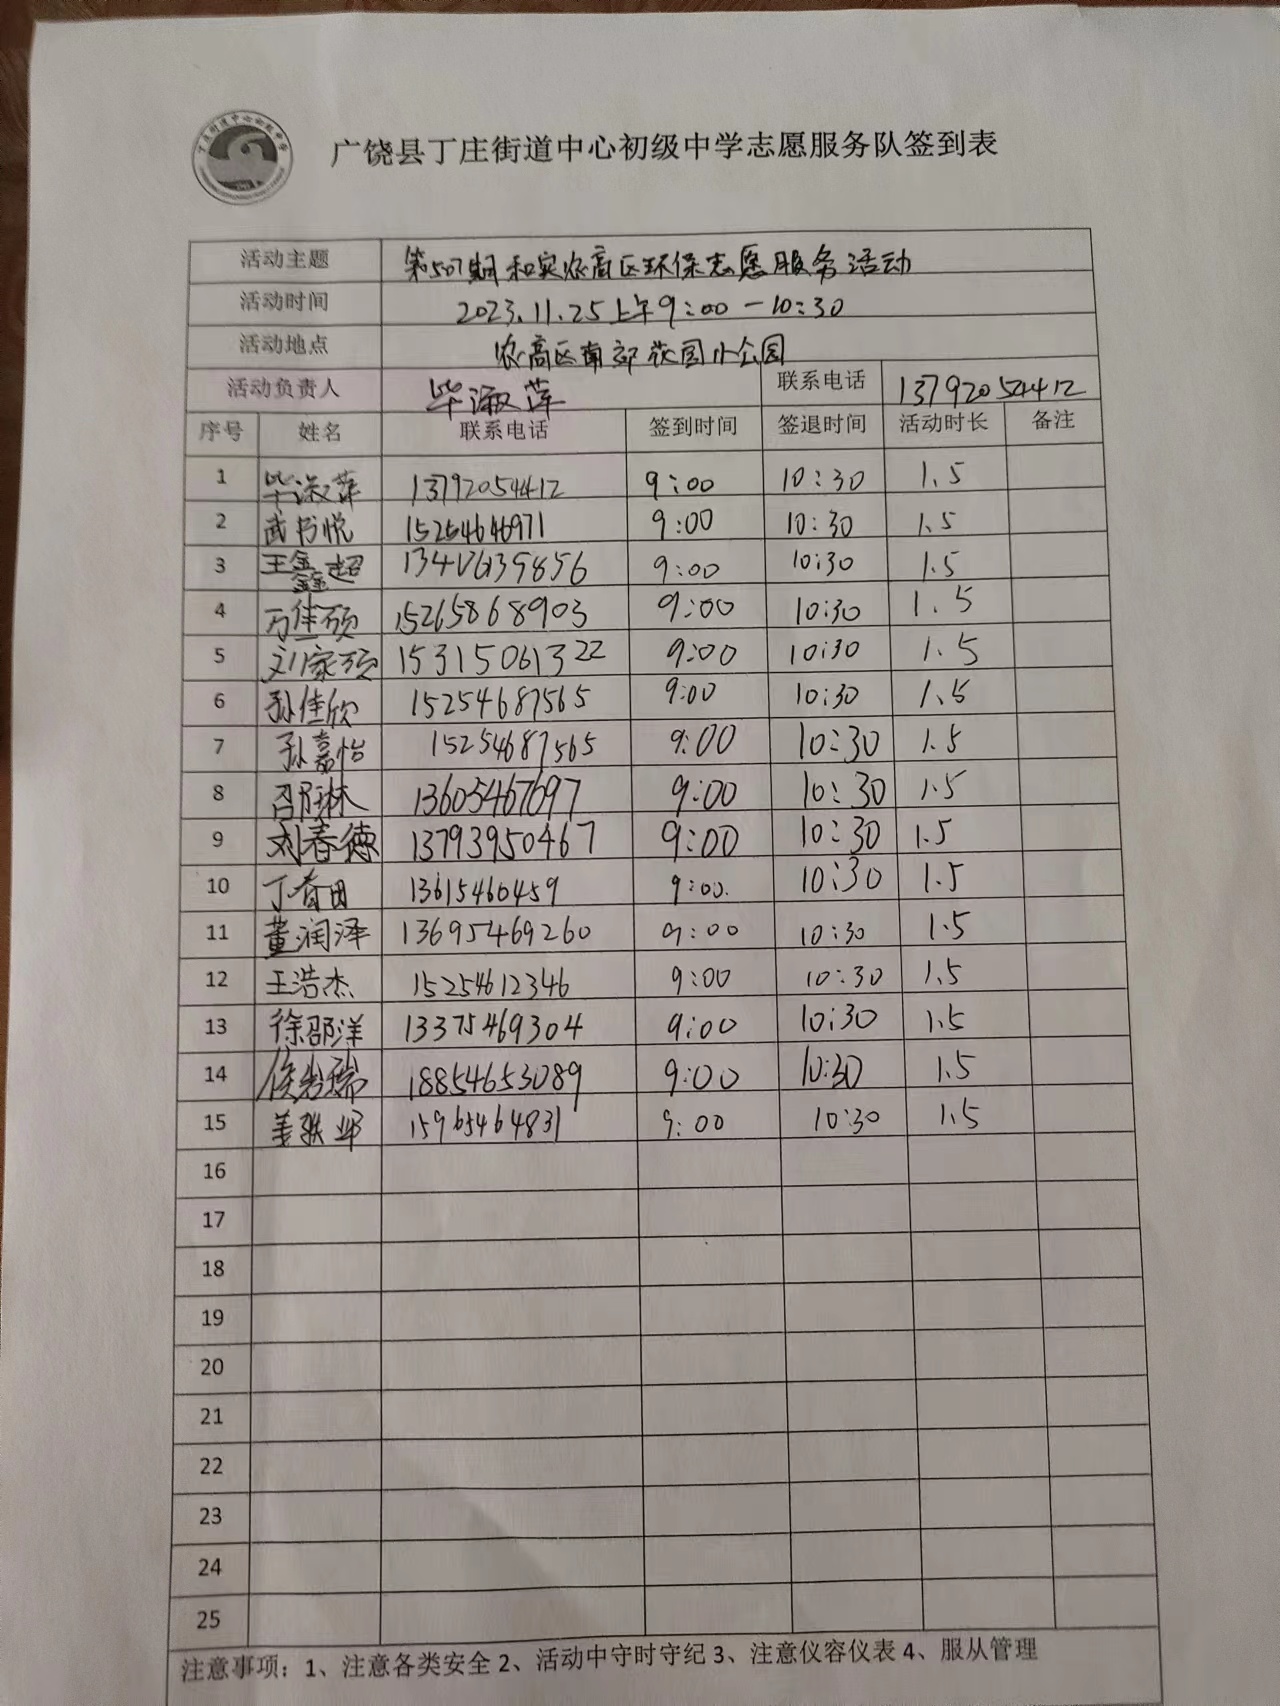 广饶县丁庄街道中心初级中学志愿服务队签到表
活动主题 第507期和实农高区环保志愿服务活动
活动时间 2023.11.25上午9:00—10:30
活动地点 农高区南郊花园小公园
活动负责人 毕淑萍 联系电话 13792054412
序号 姓名 联系电话 签到时间 签退时间 活动时长 备注
1 毕淑萍 13792054412 9:00 10:30 1.5
2 武书悦 15254646971 9:00 10:30 1.5
3 王鑫超 13476139856 9:00 10:30 1.5
4 万佳硕 15265868903 9:00 10:30 1.5
5 刘家硕 15315061322 9:00 10:30 1.5
6 孙佳欣 15254687565 9:00 10:30 1.5
7 孙嘉怡 15254687565 9:00 10:30 1.5
8 13605467697 9:00 10:30 1.5
9 刘春德 13793950467 9:00 10:30 1.5
10 丁香田 13615460459 9:00 10:30 1.5
11 董润泽 13695469260 9:00 10:30 1.5
12 王浩杰 15254612346 9:00 10:30 1.5
13 徐邵洋 13375469304 9:00 10:30 1.5
14 18854653089 9:00 10:30 1.5
15 15965464831 9:00 10:30 1.5
16
17
18
19
20
21
22
23
24
25
注意事项：1、注意各类安全 2、活动中守时守纪 3、注意仪容仪表 4、服从管理